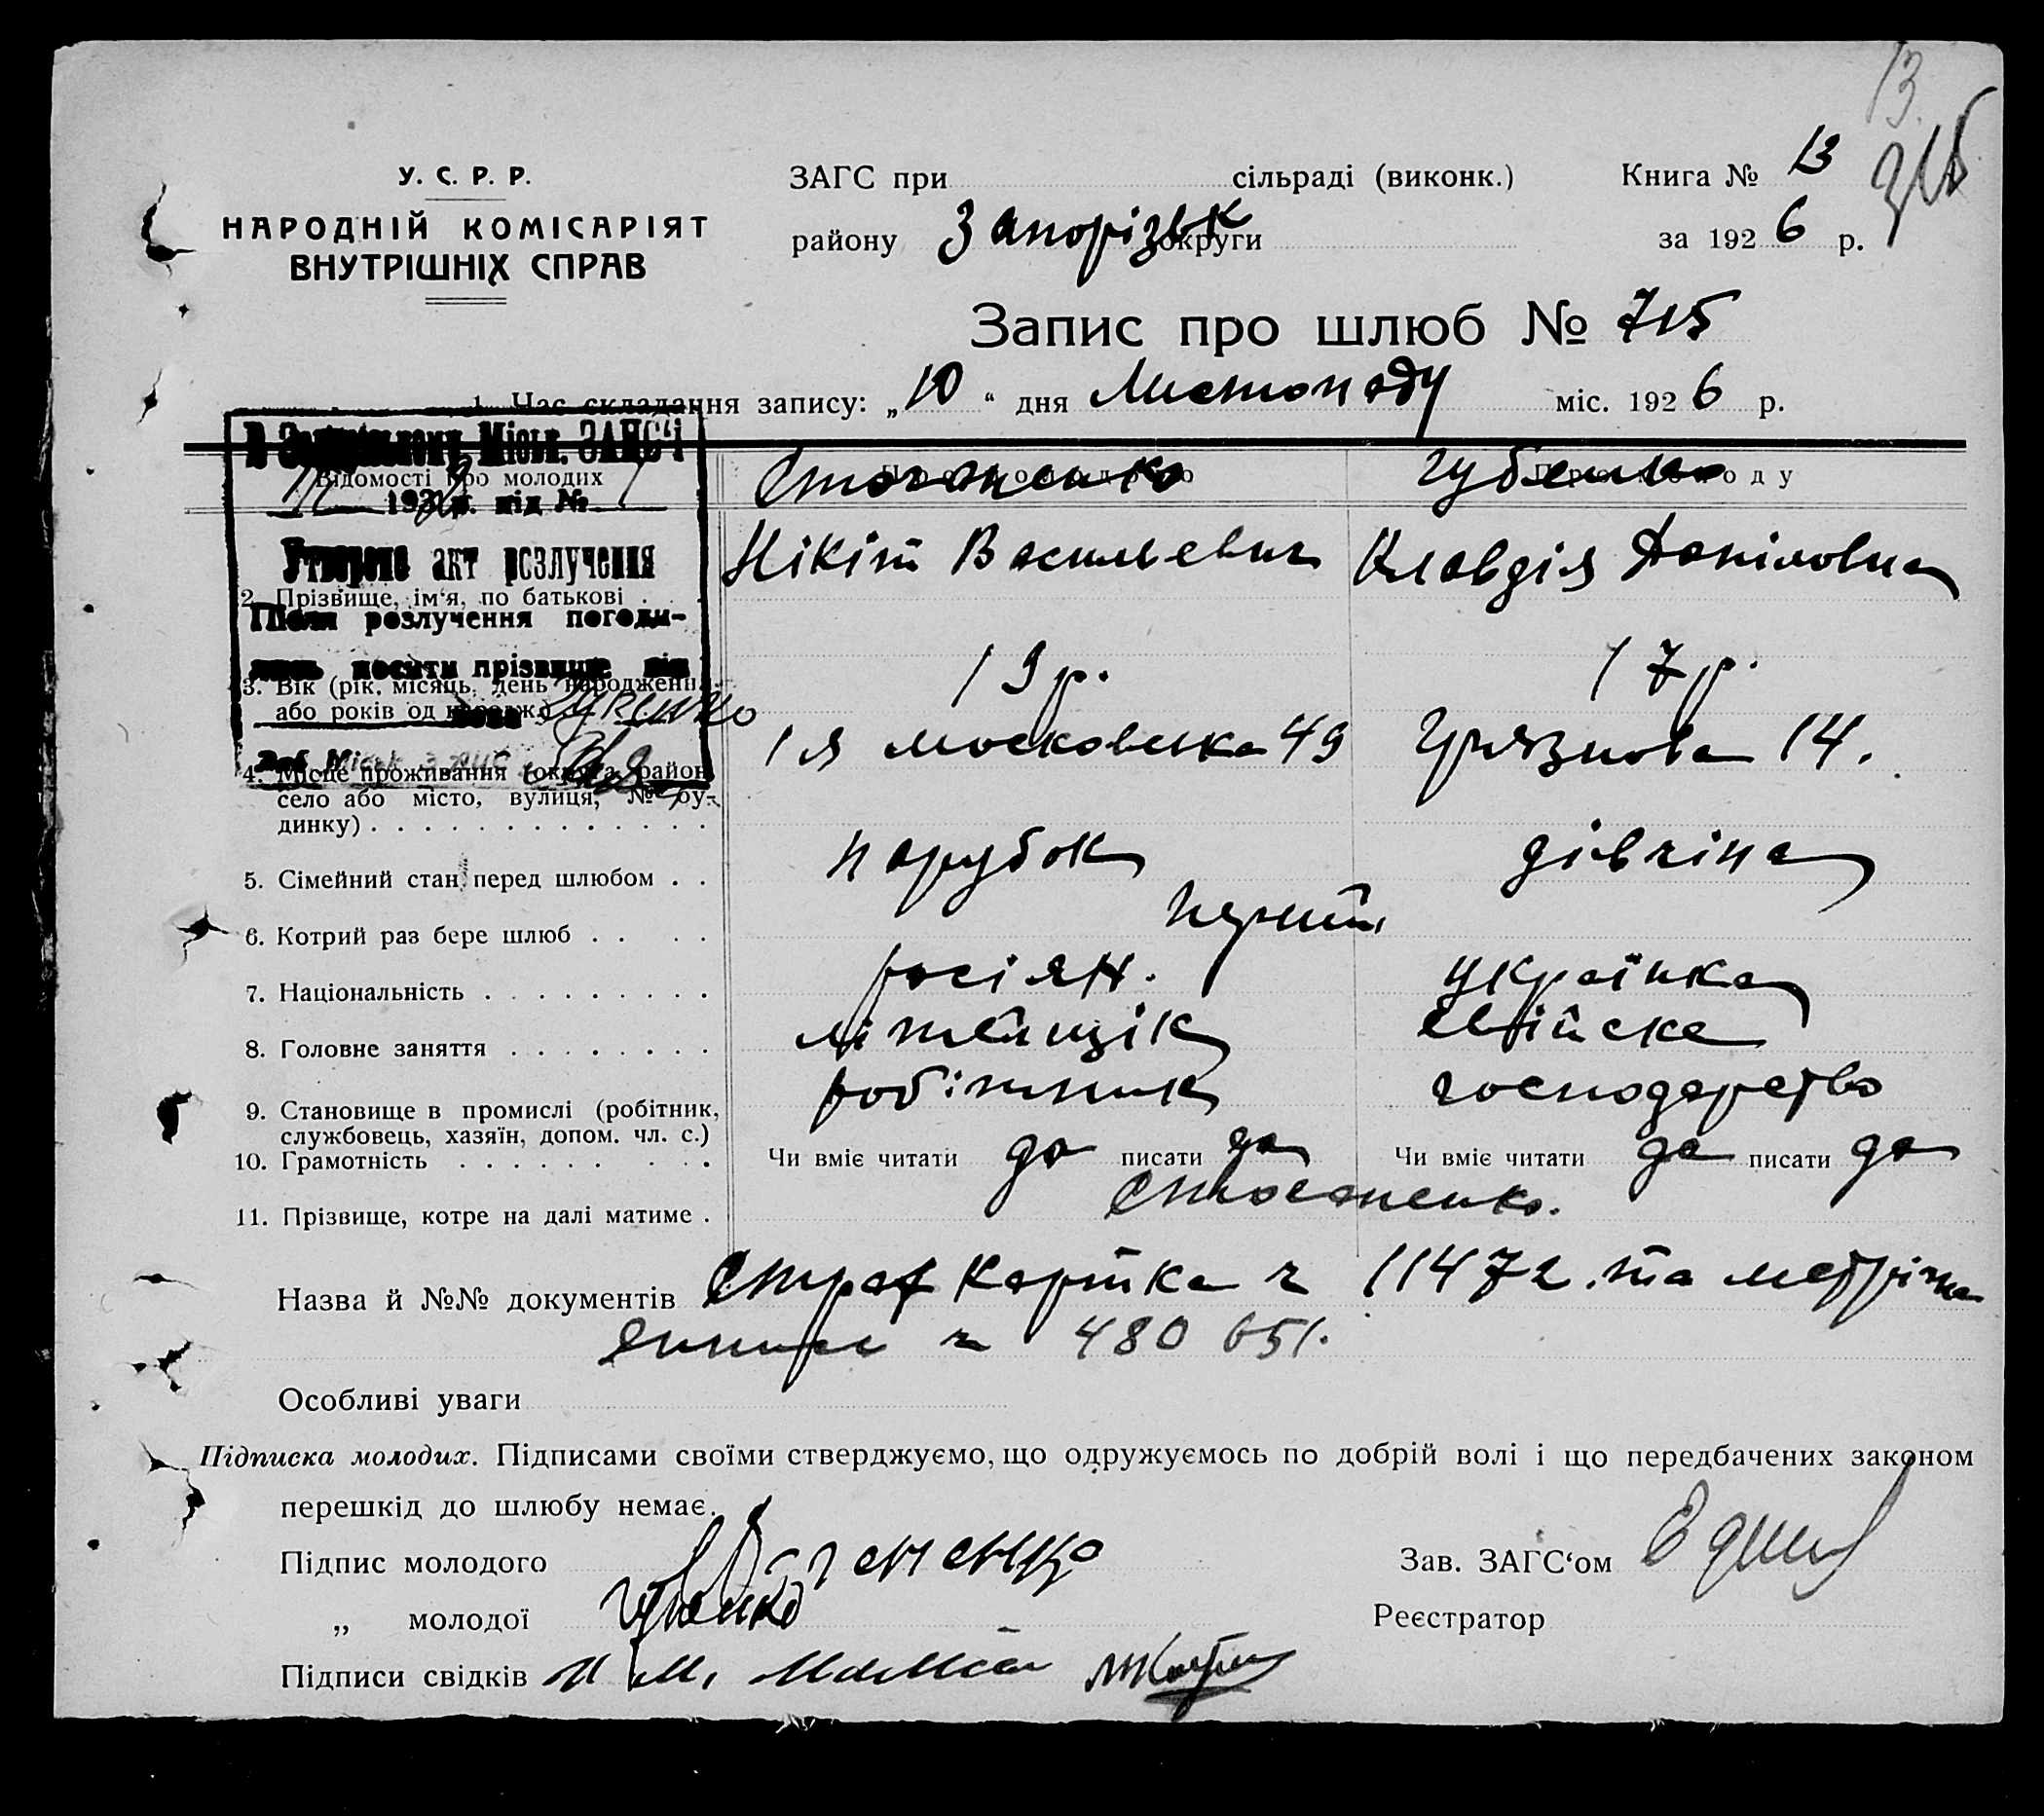 13.
У. С. Р. Р.
НАРОДНІЙ КОМІСАРІЯТ
ВНУТРІШНІХ СПРАВ
ЗАГС при сільраді (виконк.)
Книга № 13
району Запорізьк округи
за 1926 р.
Запис про шлюб № 715
1. Час складання запису: „10“ дня Листопаду міс. 1926 р.
В Запорізькому Міськ. ЗАПС'і
193 р. під №
Утворено акт розлучення
Після розлучення погоди-
лись носити прізвище він
вона
Відомості про молодих
Губенко
2. Прізвище, ім'я, по батькові .
Нікіт Васильевич
Клавдія Даніловна
3. Вік (рік, місяць, день народження
або років од народж.)
19 р.
17 р.
4. Місце проживання (округа, район,
село або місто, вулиця, № бу-
динку) . . . . . . . . . . . . . .
1 я московська 49
Грязнова 14.
5. Сімейний стан перед шлюбом . .
парубок
дівчіна
6. Котрий раз бере шлюб . . . .
перший
7. Національність . . . . . . . . .
росіян.
українка
8. Головне заняття . . . . . . . .
літейщік
свійске
9. Становище в промислі (робітник,
службовець, хазяїн, допом. чл. с.)
робітник
господарство
10. Грамотність . . . . . . . . .
Чи вміє читати да писати да
Чи вміє читати да писати да
11. Прізвище, котре на далі матиме .
Назва й №№ документів Страх картка ч 11472. та метрична
ч 480 651.
Особливі уваги
Підписка молодих. Підписами своїми стверджуємо, що одружуємось по добрій волі і що передбачених законом
перешкід до шлюбу немає.
Підпис молодого
Зав. ЗАГС‘ом
„ молодої Губенко
Реєстратор
Підписи свідків